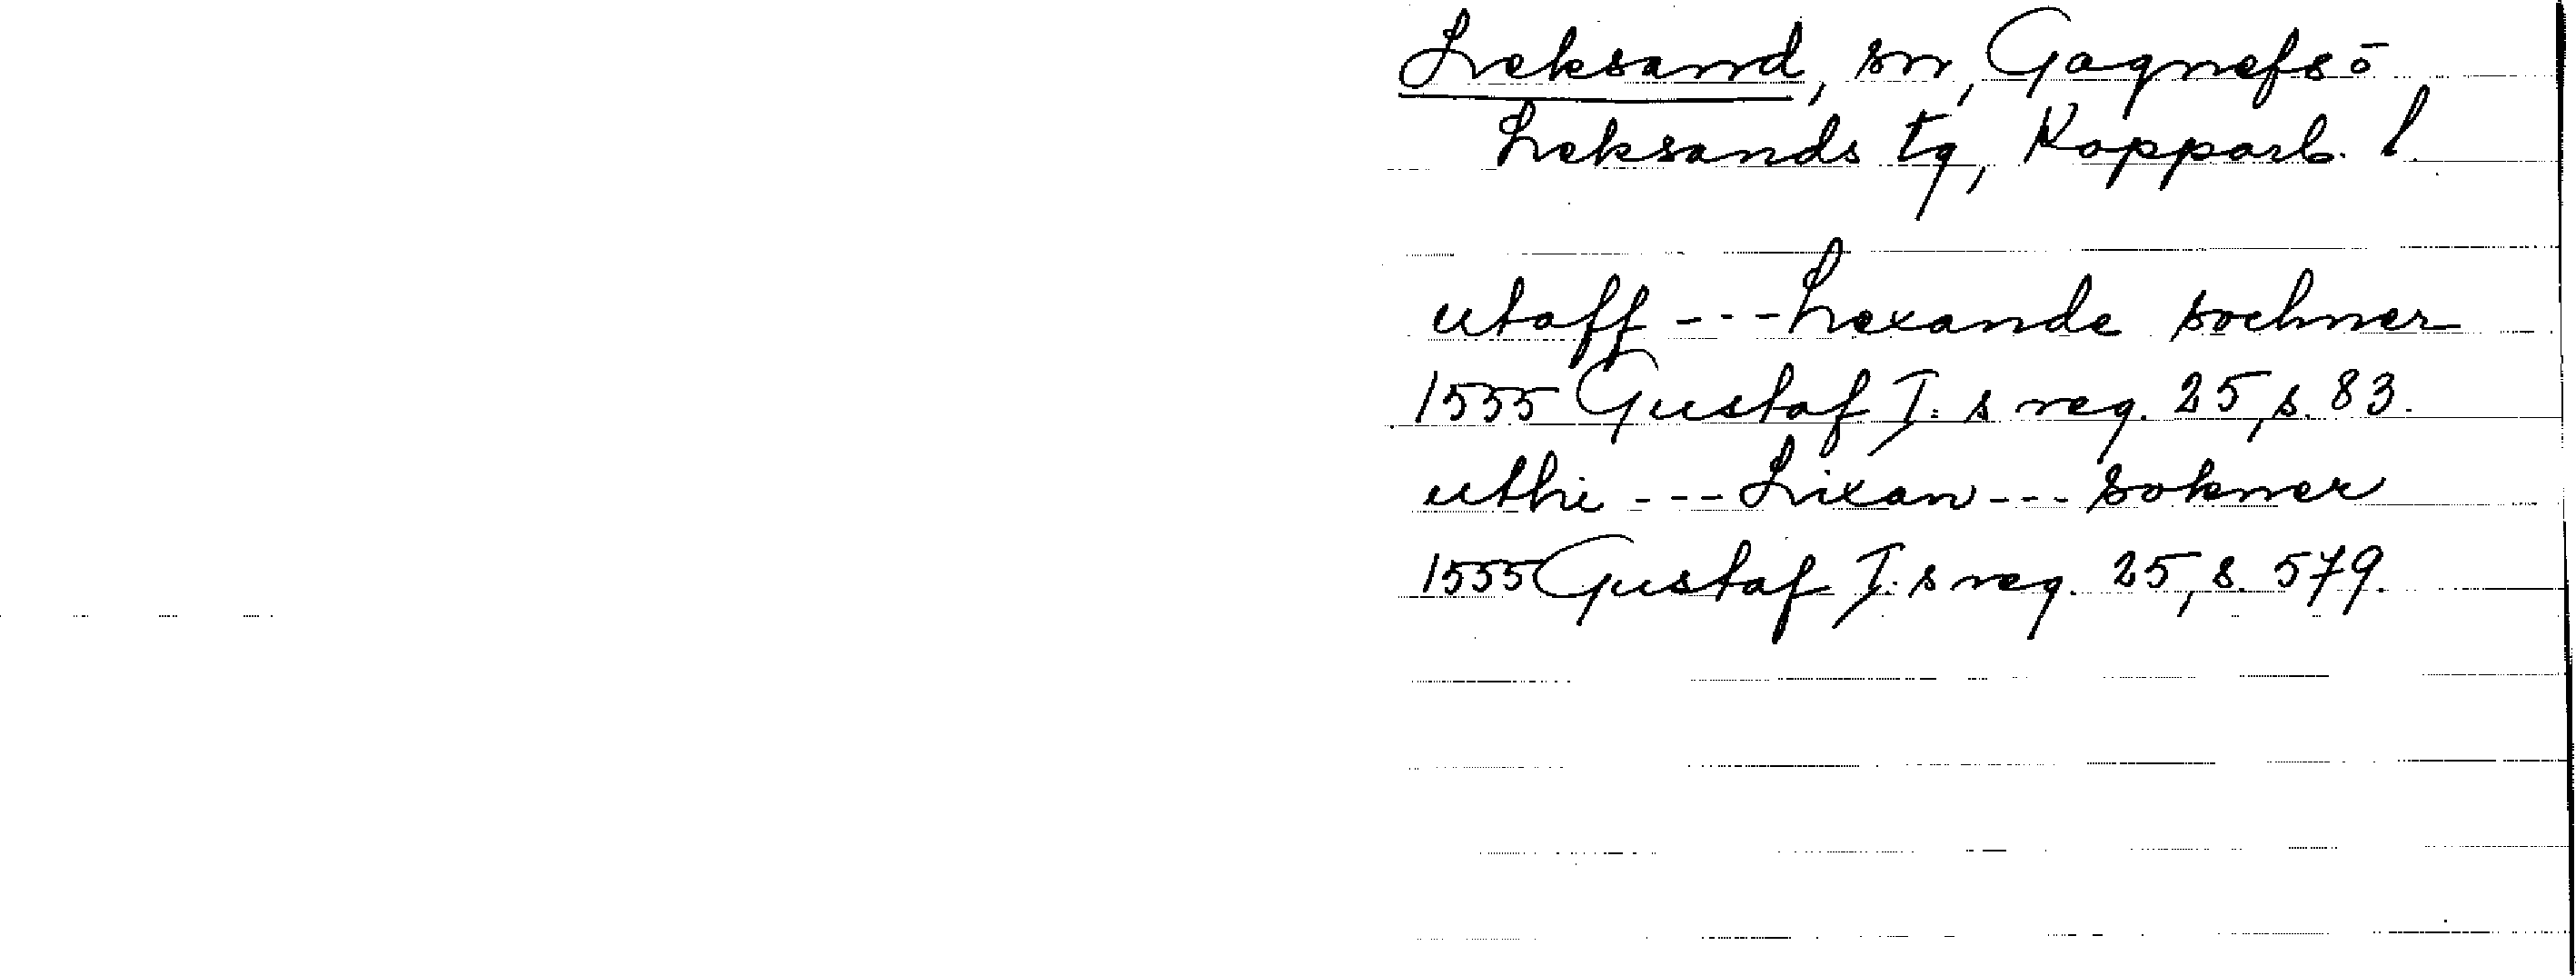 Leksand, sn, Gagnefs o
Leksands tg, Kopparb. l.
utaff --- Lexande sochner
1555 Gustaf I:s reg. 25, s. 83.
uthi --- Lixan --- sokner
1555 Gustaf I:s reg. 25, s. 579.